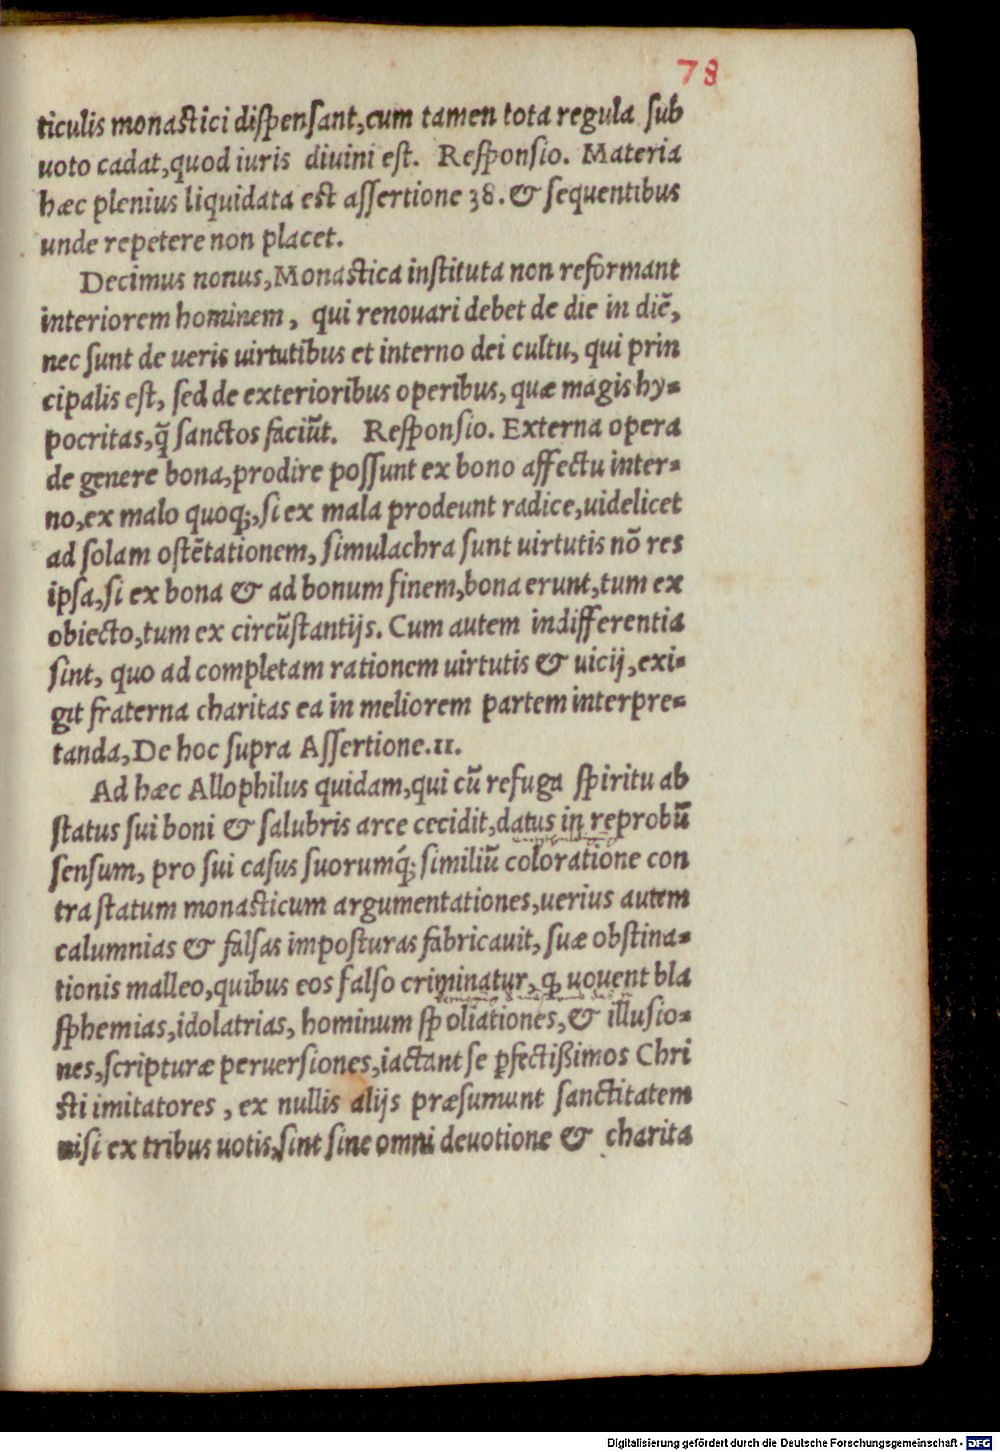 78
ticulis monastici dispensant,cum tamen tota regula sub
uoto cadat,quod iuris diuini est. Responsio. Materia
hæc plenius liquidata est assertione 38. & sequentibus
unde repetere non placet.
Decimus nonus,Monastica instituta non reformant
interiorem hominem, qui renouari debet de die in diē,
nec sunt de ueris uirtutibus et interno dei cultu, qui prin
cipalis est, sed de exterioribus operibus, quæ magis hy=
pocritas,q̄ sanctos faciūt. Responsio. Externa opera
de genere bona,prodire possunt ex bono affectu inter=
no,ex malo quoq;,si ex mala prodeunt radice,uidelicet
ad solam ostētationem, simulachra sunt uirtutis nō res
ipsa,si ex bona & ad bonum finem,bona erunt,tum ex
obiecto,tum ex circūstantijs. Cum autem indifferentia
sint, quo ad completam rationem uirtutis & uicij,exi=
git fraterna charitas ea in meliorem partem interpre=
tanda,De hoc supra Assertione.11.
Ad hæc Allophilus quidam,qui cū refuga spiritu ab
status sui boni & salubris arce cecidit,datus in reprobū
sensum, pro sui casus suorumq́; similiū coloratione con
tra statum monasticum argumentationes,uerius autem
calumnias & falsas imposturas fabricauit, suæ obstina=
tionis malleo,quibus eos falso criminatur, ꝙ uouent bla
sphemias,idolatrias, hominum spoliationes,& illusio=
nes,scripturæ peruersiones,iactant se ꝑfectißimos Chri
sti imitatores , ex nullis alijs præsumunt sanctitatem
nisi ex tribus uotis,sint sine omni deuotione & charita
Digitalisierung gefördert durch die Deutsche Forschungsgemeinschaft - DFG